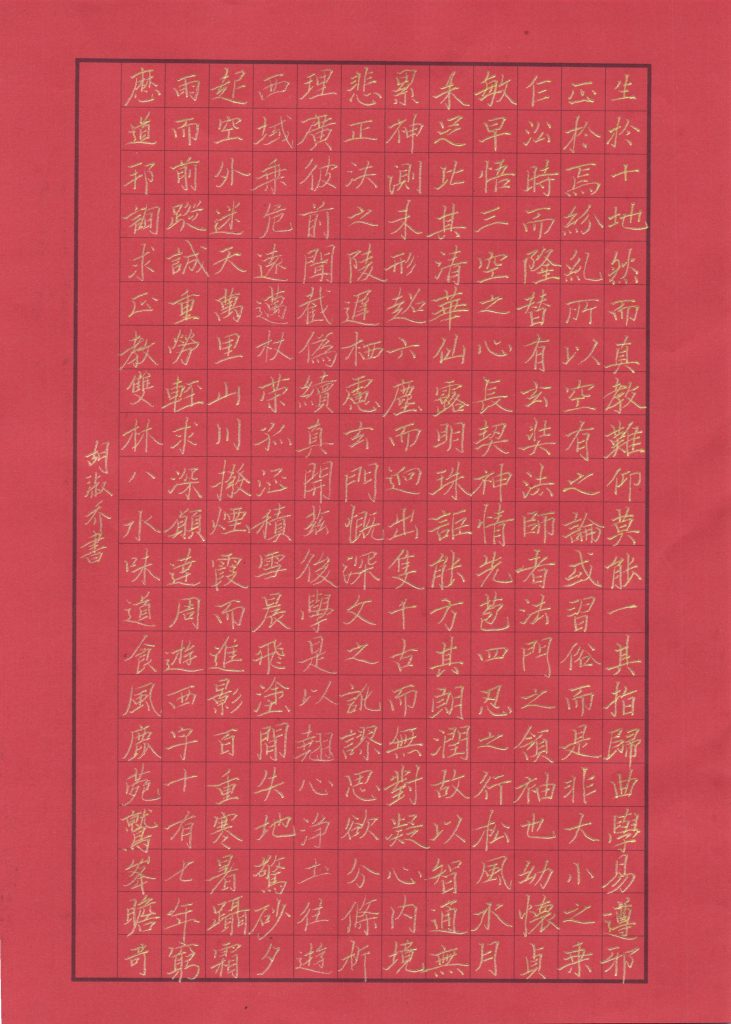 生於十地然而真教難仰莫能一其指歸曲學易遵邪
正於焉紛糺所以空有之論或習俗而是非大小之乘
乍沿時而隆替有玄奘法師者法門之領袖也幼懷貞
敏早悟三空之心長契神情先苞四忍之行松風水月
未足比其清華仙露明珠詎能方其朗潤故以智通無
累神測未形超六塵而迥出隻千古而無對凝心内境
悲正法之陵遲栖慮玄門慨深文之訛謬思欲分條析
理廣彼前聞截偽續真開兹後學是以翹心浄土往遊
西域乘危遠邁杖策孤征積雪晨飛塗間失地驚砂夕
起空外迷天萬里山川撥煙霞而進影百重寒暑躡霜
雨而前蹤誠重勞輕求深願達周遊西宇十有七年窮
歷道邦詢求正教雙林八水味道食風鹿菀鷲峯瞻奇
胡淑乔書